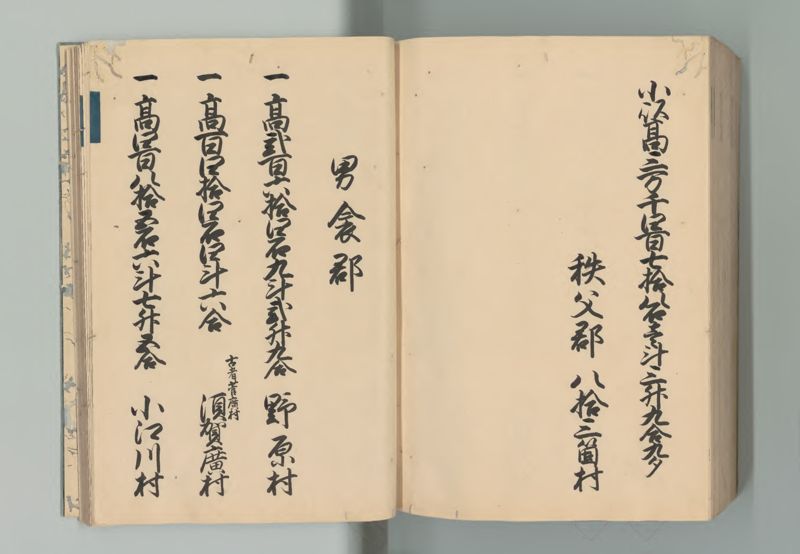 小以高三万千四百七拾八石壱斗三升九合九夕
秩父郡 八拾三箇村
男衾郡
一 高弐百六拾四石九斗弐升九合 野原村
一 高百四拾四石四斗六合 古者菅廣村 須賀廣村
一 高四百八拾五石六斗七升五合 小江川村